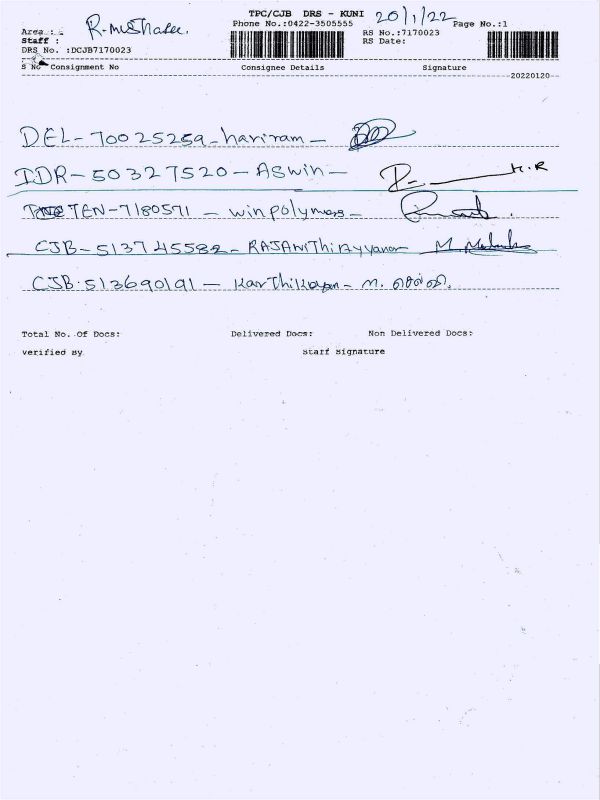 TPC/CJB DRS - KUNI 20/1/22
Phone No.:0422-3505555 Page No.:1
Area : R. 
Staff :
RS No.:7170023
RS Date:
DRS No. :DCJB7170023
S No Consignment No Consignee Details Signature
20220120
DEL-700 25259-hariram-
IDR-50327520-ASwin- H.R
TEN-7180571 - winpolymers-
CJB-513745582- M.
CJB:513690191- Karthikeyan-
Total No. Of Docs: Delivered Docs: Non Delivered Docs:
verified By Staff Signature